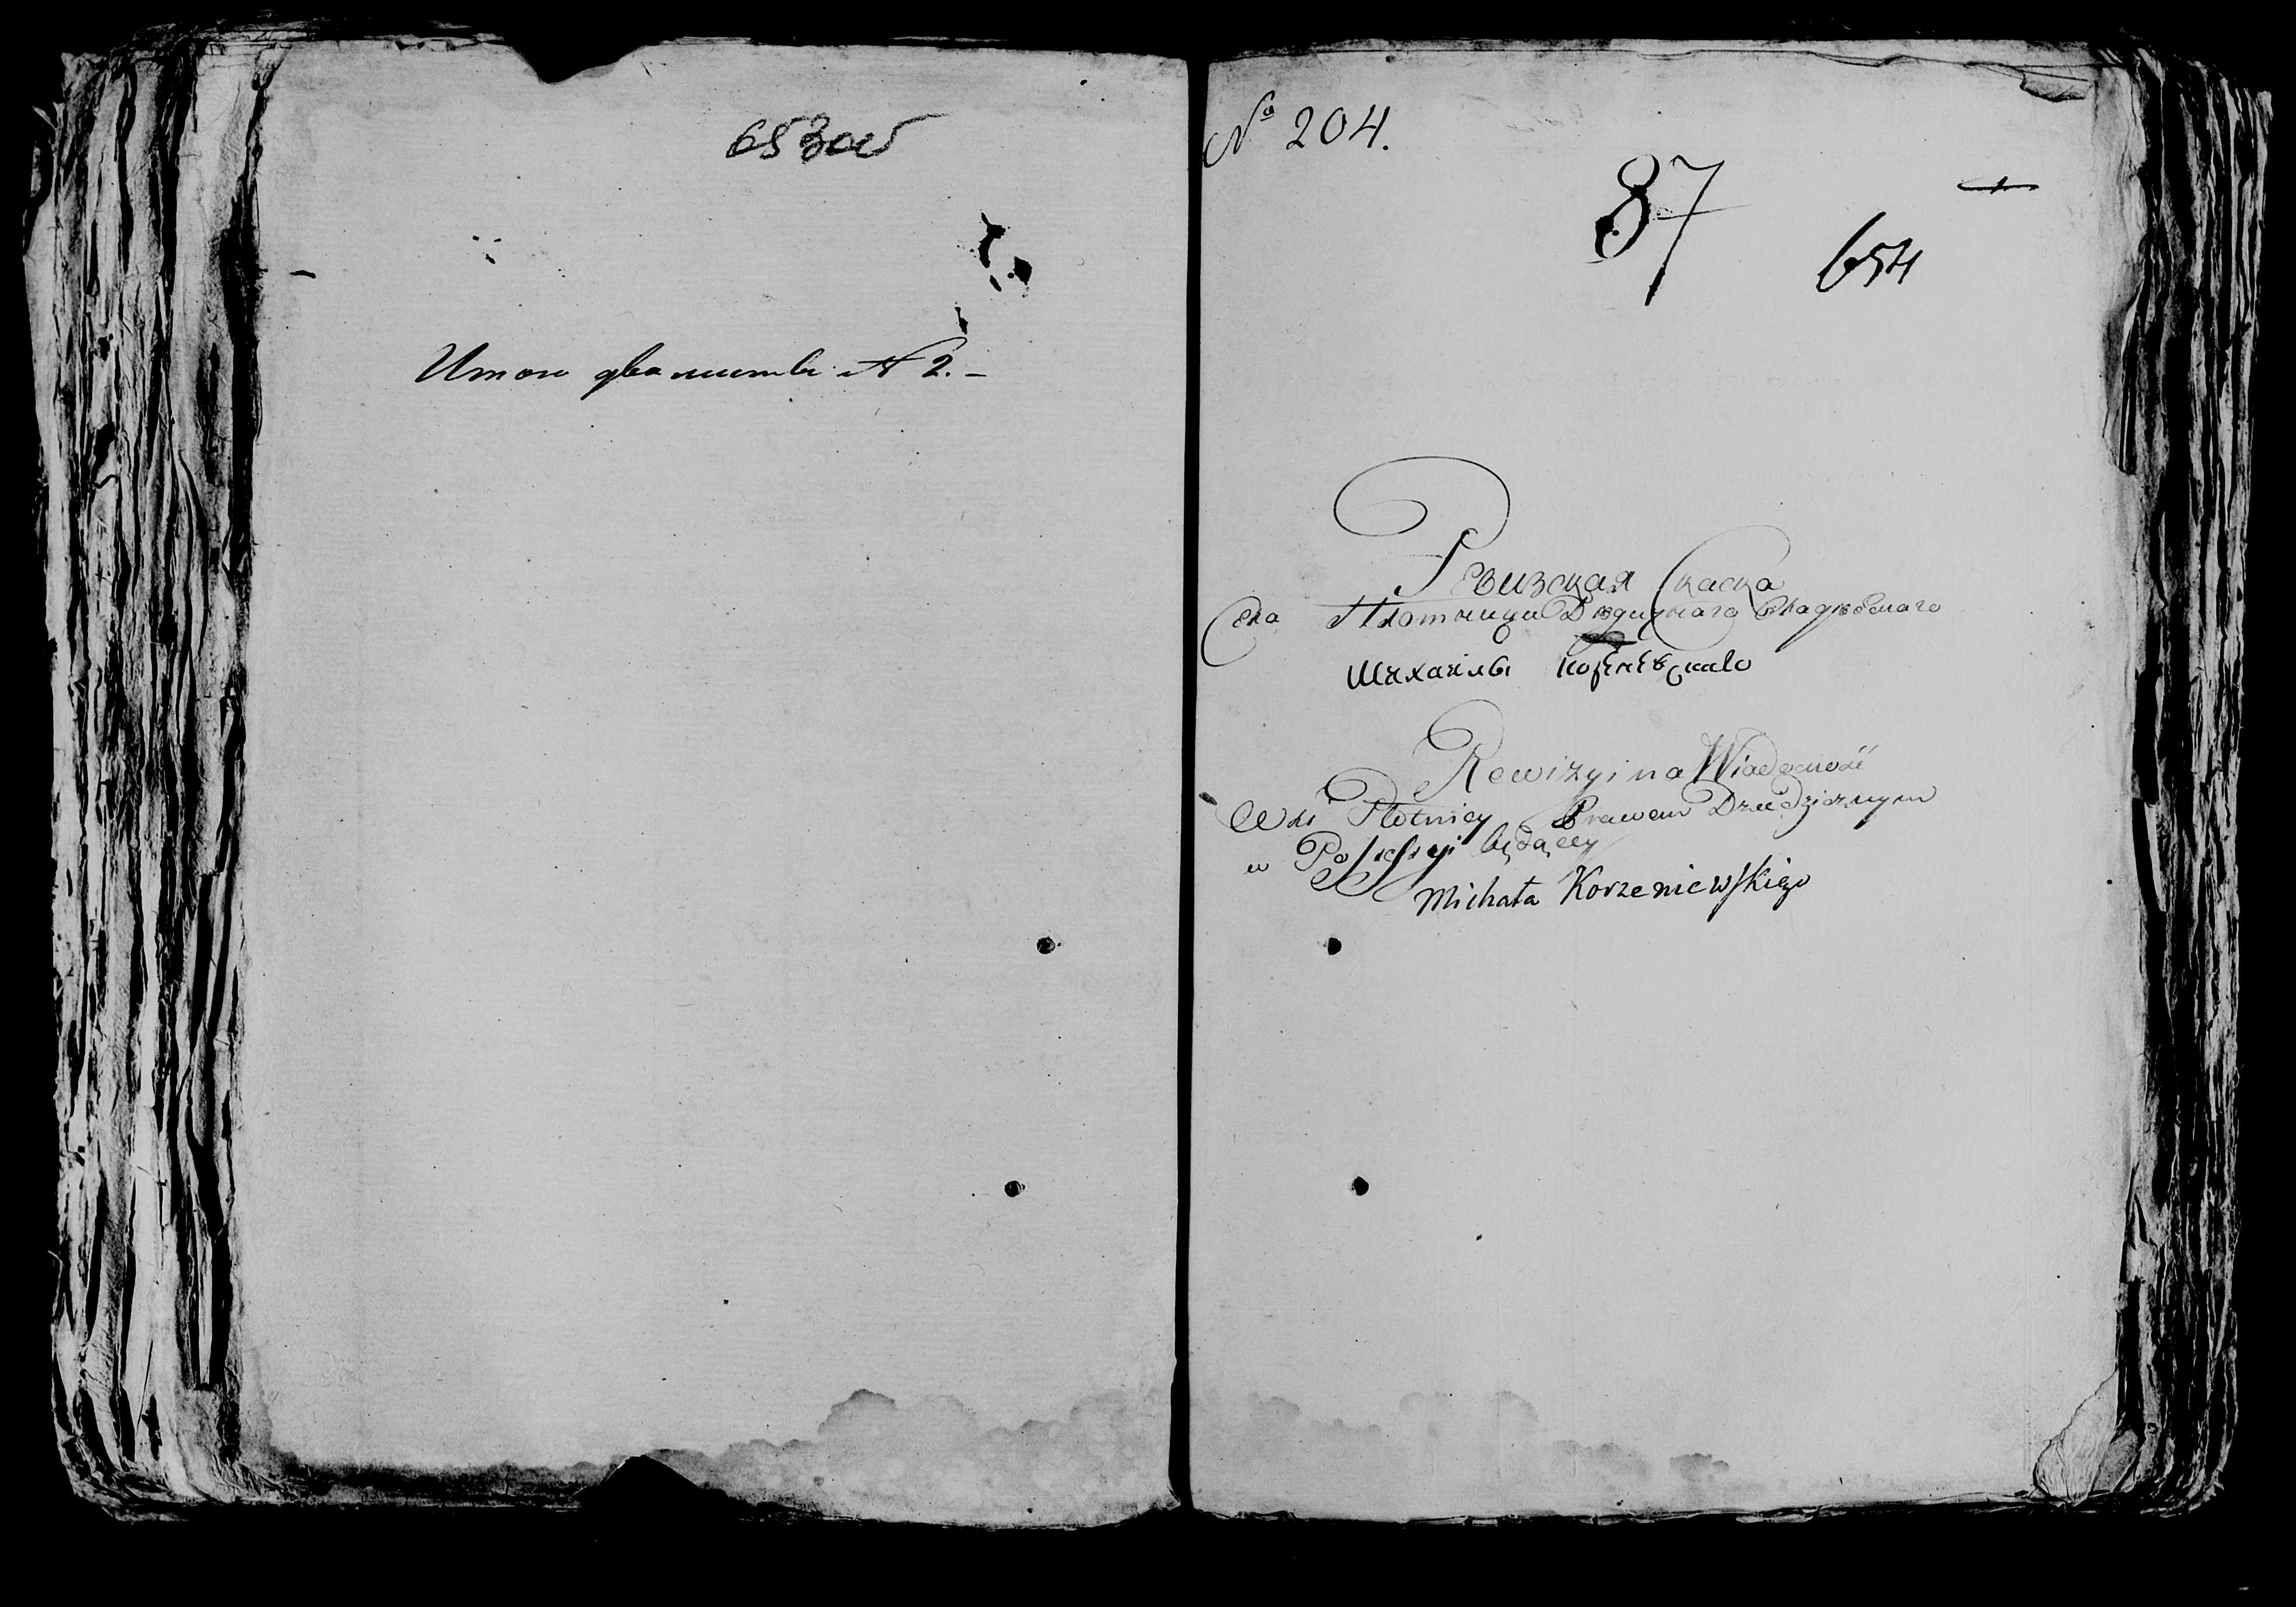 653об
Итого два листа N 2. –
№ 204.
87
654
Ревизская Скаска
Села Плотницы Дѣдизнаго владѣемаго
Михаилы Корженевскаго
Rewizyina Wiadomość
Wsi Płotnicy Prawem Dziedzicznym
w Possessyi będącey
Michała Korzeniewskiego